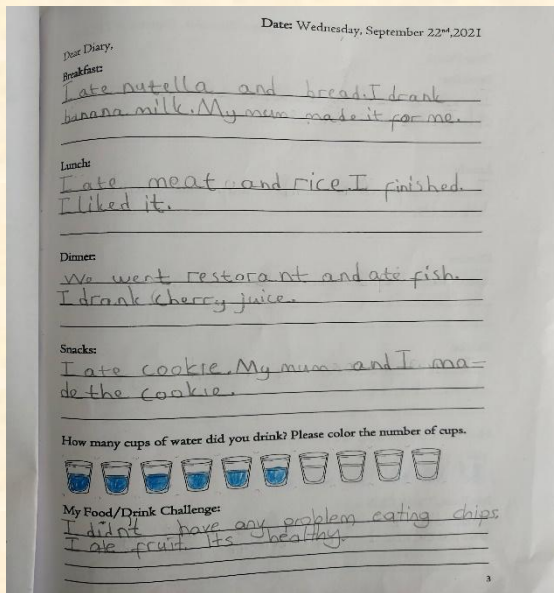 Date: Wednesday, September 22nd,2021
Dear Diary,
Breakfast:
I ate nutella and bread.I drank
banana milk.My mum made it for me.
Lunch:
I ate meat and rice.I finished.
I liked it.
Dinner:
We went restorant and ate fish.
I drank cherry juice.
Snacks:
I ate cookie.My mum and I ma=
de the cookie.
How many cups of water did you drink? Please color the number of cups.
My Food/Drink Challenge:
I didn't have any problem eating chips
I ate fruit. Its healthy.
3